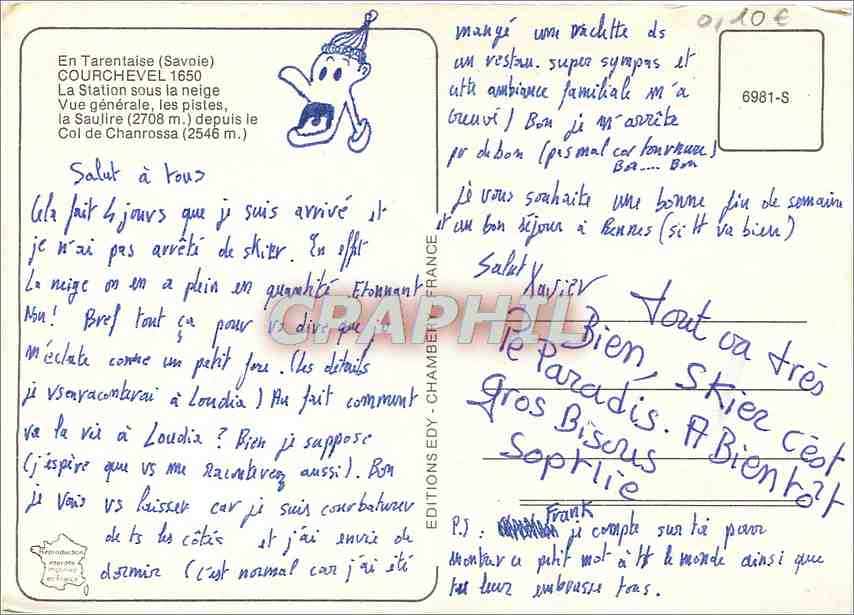 En Tarentaise (Savoie)
COURCHEVEL 1650
La Station sous la neige
Vue générale, les pistes,
la Saulire (2708 m.) depuis le
Col de Chanrossa (2546 m.)
Salut à tous
Cela fait 4 jours que je suis arrivé et
je n'ai pas arrêté de skier. En effet
la neige on en a plein en quantité. Etonnant
Non! Bref tout ça pour vs dire que je
m'éclate comme un petit fou. (les détails
je vs en raconterai à Loudia) Au fait comment
va la vie à Loudia? Bien je suppose
(j'espère que vs me raconterez aussi). Bon
je vais vs laisser car je suis courbaturer
de ts les côtés et j'ai envie de
dormir (c'est normal car j'ai été
Reproduction
interdite
imprimé
en France
EDITIONS EDY - CHAMBERY FRANCE
CPAPHIL
0,10 €
6981-S
mangé une raclette ds
un restau. super sympas et
cette ambiance familiale m'a
creuvé) Bon je m'arrête
pr de bon (pas mal car tournure)
Bon.... Bon
je vous souhaite une bonne fin de semaine
et un bon séjour à Rennes (si tt va bien)
Salut Xavier
Tout va très
Bien, Skier c'est
le Paradis. A Bientôt
gros Bisous
Sophie
Frank
P.S: je compte sur toi pour
montrer ce petit mot à tt le monde ainsi que
tu leur embrasse tous.